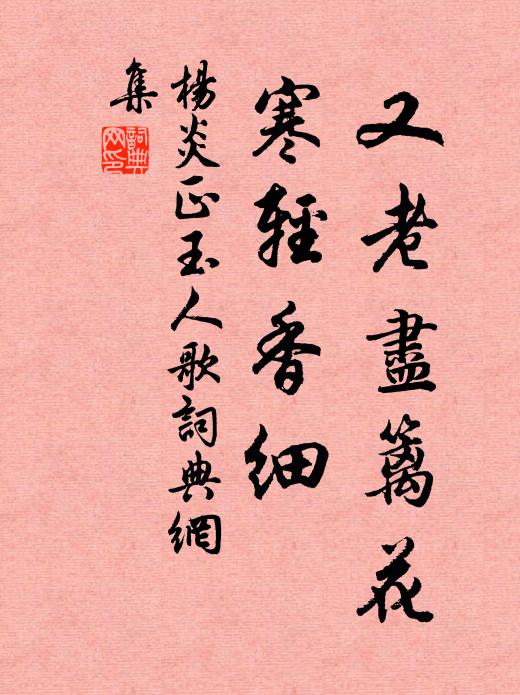 又老盡籬花
寒輕香細
楊炎正玉人歌詞典網
集
詞典網印